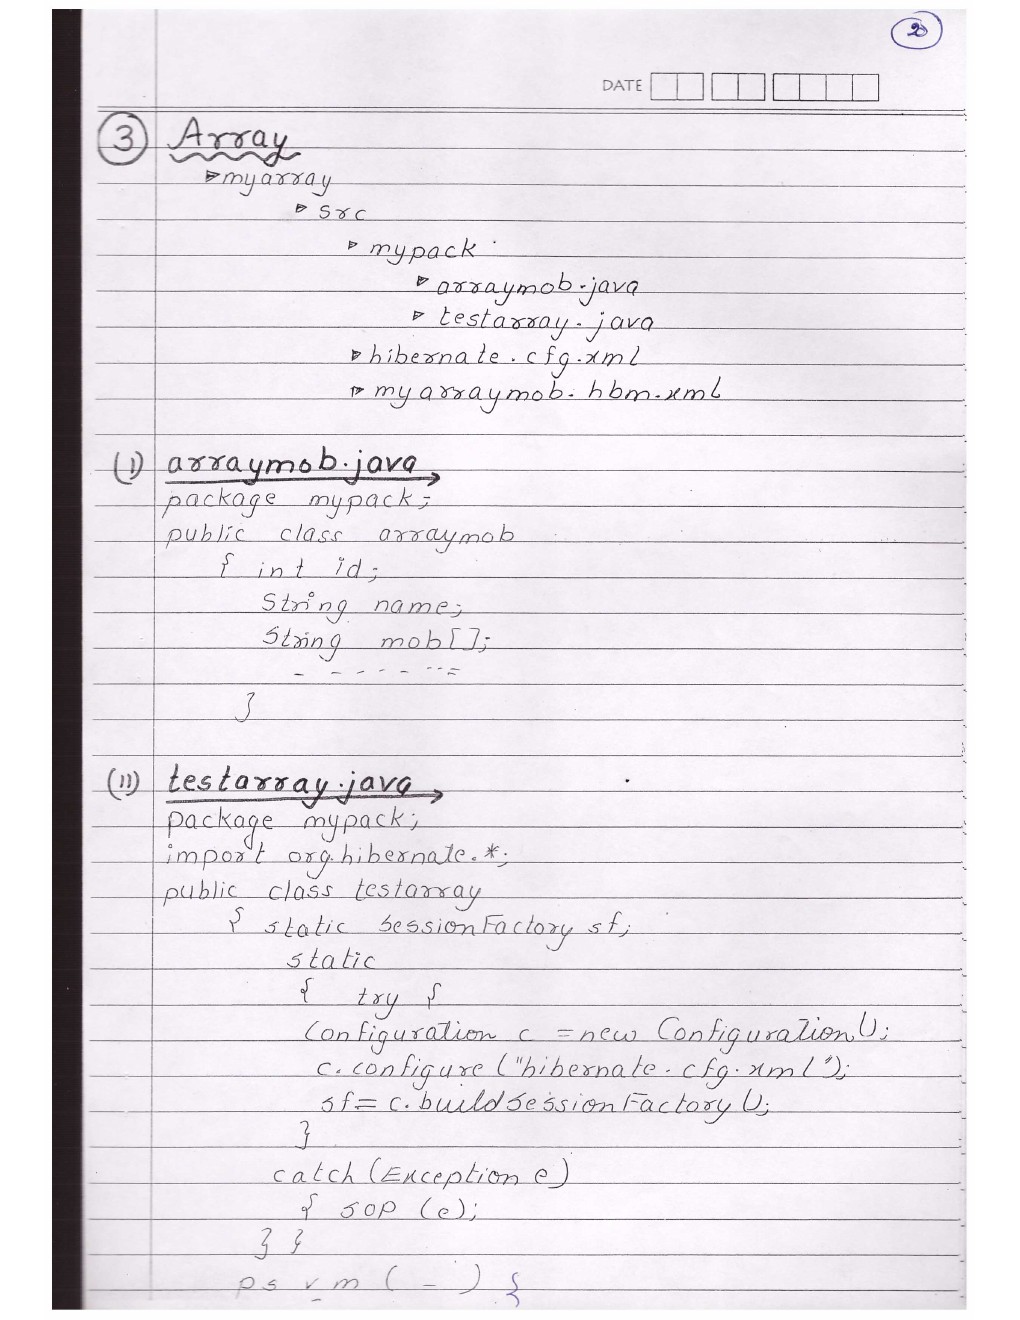 20
DATE
3 Array
myarray
src
mypack
arraymob.java
testarray.java
hibernate.cfg.xml
myarraymob.hbm.xml
(I) arraymob.java
package mypack;
public class arraymob
{ int id;
String name;
String mob[];
- - - - - - - =
}
(II) testarray.java
package mypack;
import org.hibernate.*;
public class testarray
{ static SessionFactory sf;
static
{ try {
Configuration c = new Configuration();
c.configure ("hibernate.cfg.xml");
sf = c.buildSessionFactory();
}
catch (Exception e)
{ sop (e);
} }
ps v m ( - ) {